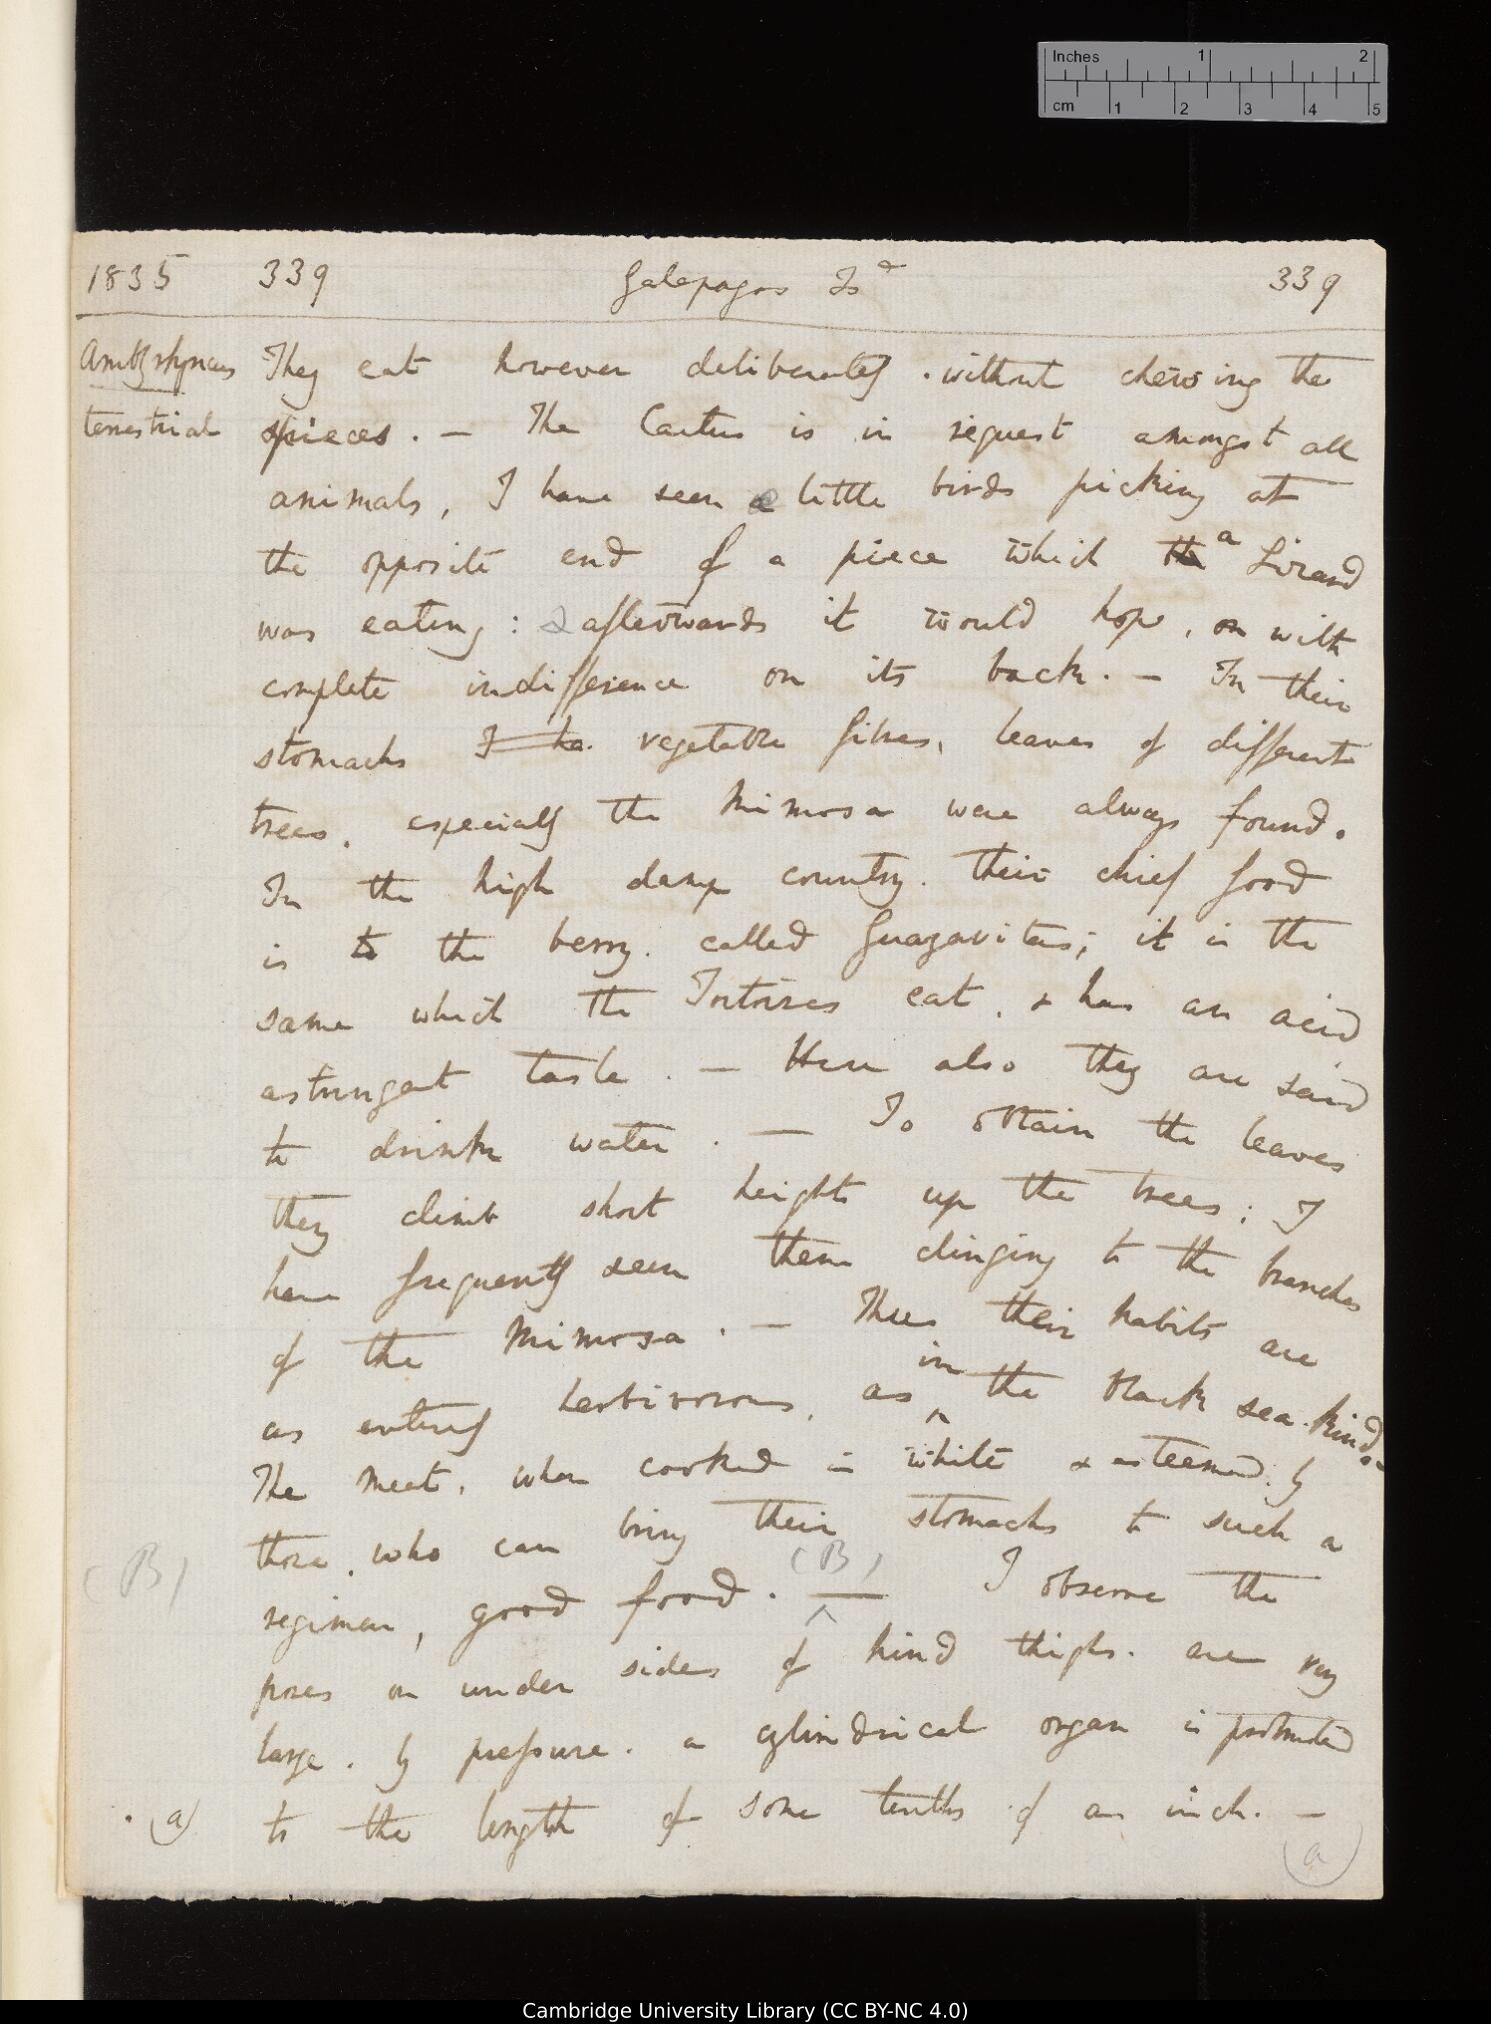 Inches 1 2
cm 1 2 3 4 5
1835 339 Galapagos Isd 339
Amblyrhyncus They eat however deliberately. without chewing the
terrestrial pieces. — The Cactus is in request amongst all
animals, I have seen little birds picking at
the opposite end of a piece which the a Lizard
was eating: & afterwards it would hop, on with
complete indifference on its back. — In their
stomachs I ha. vegetable fibres, leaves of different
trees, especially the Mimosa were always found.
In the high damp country. their chief food
is to the berry. called Guayavitas; it is the
same which the Tortoises eat, & has an acid
astringent taste. — Here also they are said
to drink water. — To obtain the leaves
they climb short heights up the trees; I
have frequently seen them clinging to the branches
of the Mimosa. — Thus their habits are
as entirely herbivorous, as in the black sea-kind.
The meat, when cooked is white & esteemed by
those, who can bring their stomachs to such a
(B) regimen, good food. (B) — I observe the
pores on under sides of hind thighs. are very
large. by pressure. a cylindrical organ is protruded
(a) to the length of some tenths of an inch. —
(a)
Cambridge University Library (CC BY-NC 4.0)